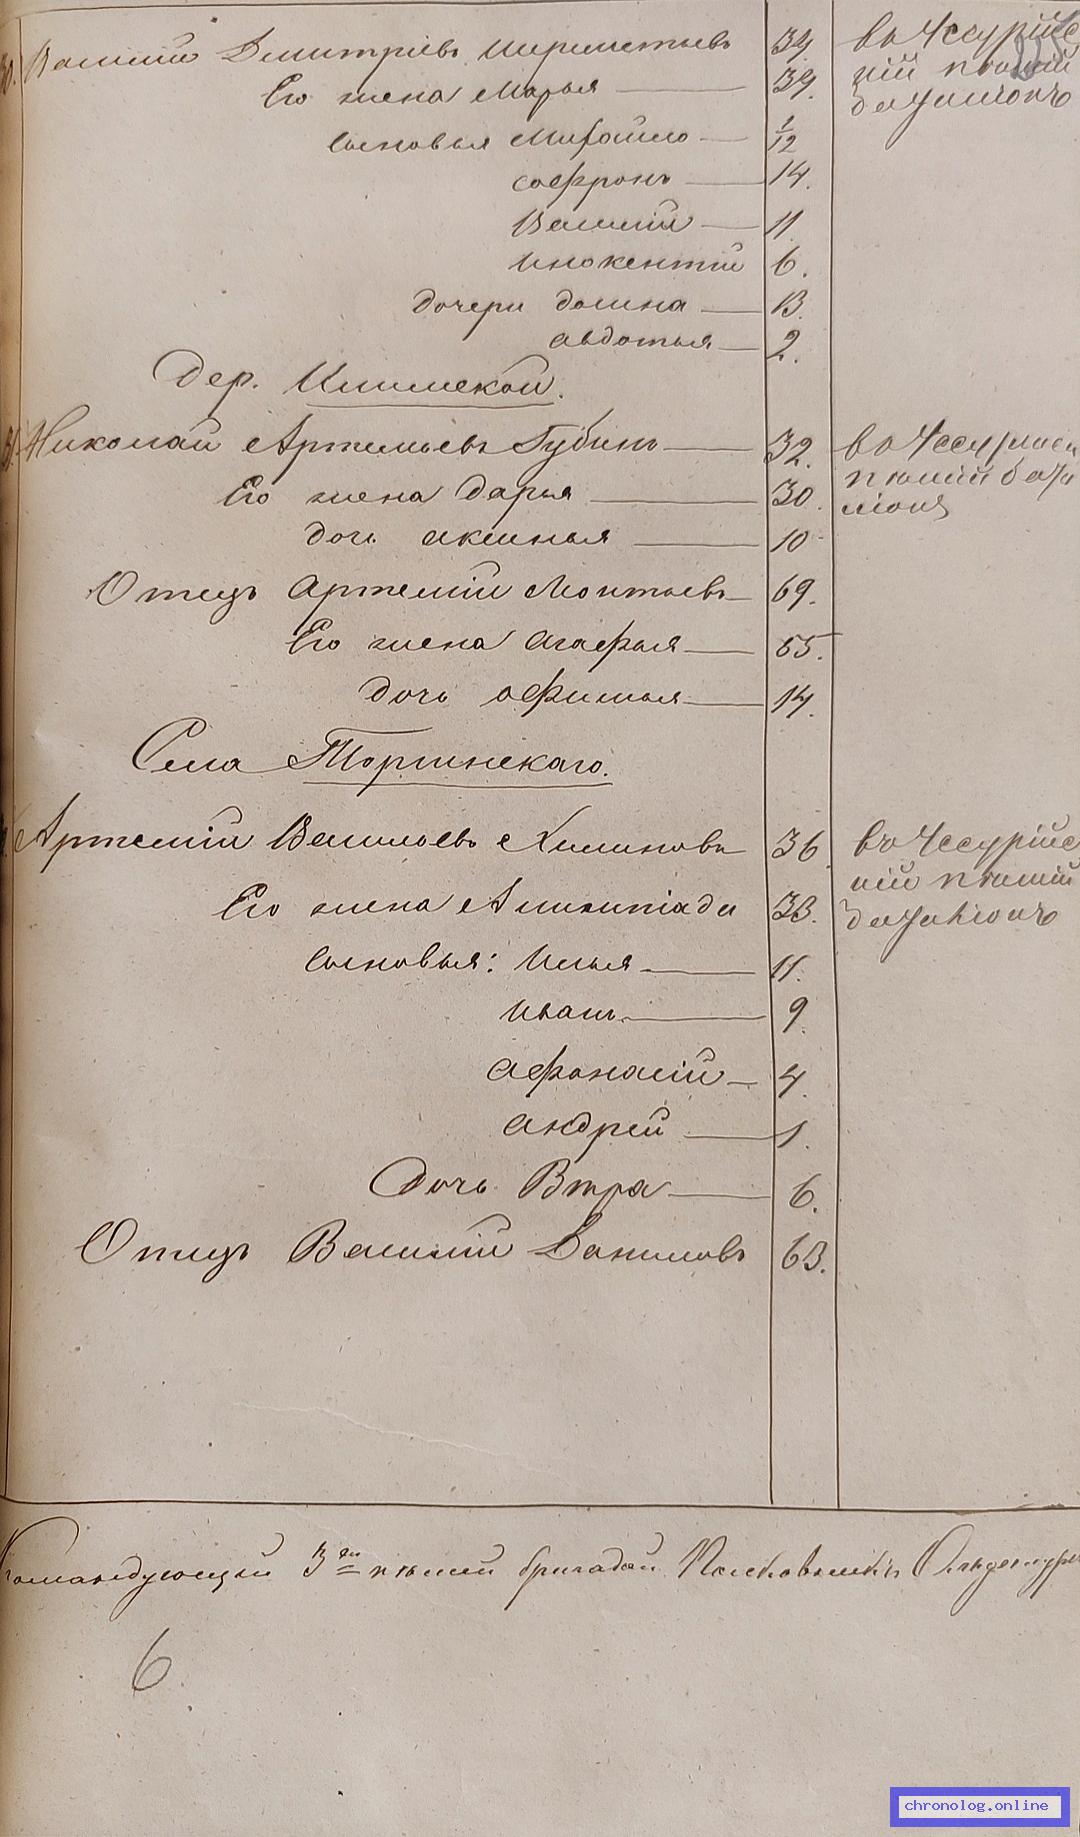 30. Василій Дмитріевъ Шереметьевъ 34. въ Уссурійс
Его жена Марья 39. кій пѣшій
баталіонъ
Сыновья Михайло 1/12
Софронъ 14.
Василій 11
Инокентій 6.
дочери домна 13.
авдотья 2.
Дер.
31. Николай Артемьевъ Губинъ 32. въ Уссурійск
пѣшій бата
ліонъ
Его жена Дарья 30.
дочь аксинья 10
Отецъ Артемій Леонтьевъ 69.
Его жена Агафья 65.
дочь афимья 14.
Села Торгинскаго.
Артемій Васильевъ 36. въ Уссурійс
кій пѣшій
баталіонъ
Его жена 33.
Сыновья: Илья 11.
Иванъ 9.
Афонасій 4.
Андрей 1.
Дочь Вѣра 6.
Отецъ Василій Даниловъ 63.
Командующій 3ею пѣшей бригадой Полковникъ
6
chronolog.online